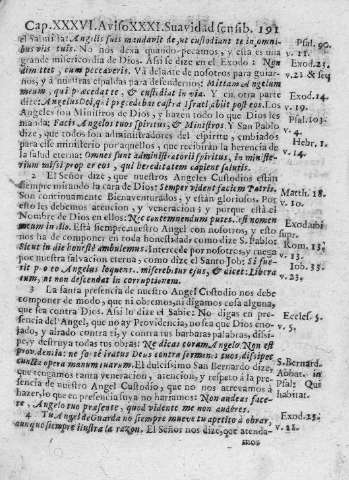 Cap. XXXVI. Aviso XXXI. Suavidad sensib. 191
el Salmista: Angelis suis mandavit de te, ut custodiant te in omnibus
viis tuis. No nos dexa quando pecamos, y esta es una
grande misericordia de Dios. Assi se dize en el Exodo: Non
dimittet, cum peccaveris. Vá delante de nosotros para guiarnos,
y à nuestras espaldas para defendernos: Mittam Angelum
meum, qui præcedat te, & custodiat in via. Y en otra parte
dize: Angelus Dei, qui præcedebat castra Israel, abiit post eos. Los
Angeles son Ministros de Dios, y hazen todo lo que Dios les
manda: Facis Angelos tuos spiritus, & Ministros. Y San Pablo
dize, que todos son administradores del espiritu, embiados
para este ministerio por aquellos, que recibirán la herencia de
la salud eterna: Omnes sunt administratorii spiritus, in ministerium
missi propter eos, qui hereditatem capient salutis.
2 El Señor dize, que nuestros Angeles Custodios están
siempre mirando la cara de Dios: Semper vident faciem Patris.
Son continuamente Bienaventurados, y están gloriosos. Por
esto les debemos atencion, y veneracion; y porque está el
Nombre de Dios en ellos: Nec contemnendum putes. nomen
meum in illo. Está siempre nuestro Angel con nosotros, y esto
nos ha de componer en toda honestidad, como dize S. Pablo:
Sicut in die honestè ambulemus. Intercede por nosotros, y ruega
por nuestra salvacion eterna, como dize el Santo Job: Si fuerit
pro eo Angelus loquens. miserebitur ejus, & dicet: Libera
eum, ut non descendat in corruptionem.
3 La santa presencia de nuestro Angel Custodio nos debe
componer de modo, que ni obremos, ni digamos cosa alguna,
que sea contra Dios. Assi lo dize el Sabio: No digas en presencia
del Angel, que no ay Providencia, no sea que Dios enojado,
y airado contra ti, y contra tus barbaras palabras, dissipe,
y destruya todas tus obras: Ne dicas coram Angelo: Non est
providentia: ne fortè iratus Deus contra sermones tuos, dissipet
cuncta opera manuum tuarum. El dulcissimo San Bernardo dize,
que tengamos tanta veneracion, atencion, y respeto à la presencia
de nuestro Angel Custodio, que no nos atrevamos à
hazer, lo que en presencia suya no haríamos: Non audeas facere,
Angelo tuo præsente, quod vidente me non auderes.
4 Tu Angel de Guarda no siempre mueve tu apetito à obrar,
aunque siempre ilustra la razon. El Señor nos dize, que atendamos
Psal. 90.
v. 11.
Exod. 23.
v. 21 & seq
Exod. 14.
v. 19.
Psal. 103.
v. 4.
Hebr. 1.
v. 14.
Matth. 18.
v. 10.
Exod. ubi
supr.
Rom. 13.
v. 13.
Iob. 33.
v. 23.
Eccles. 5.
v. 5.
S. Bernard.
Abbat. in
Psal. Qui
habitat.
Exod. 23.
v. 21.